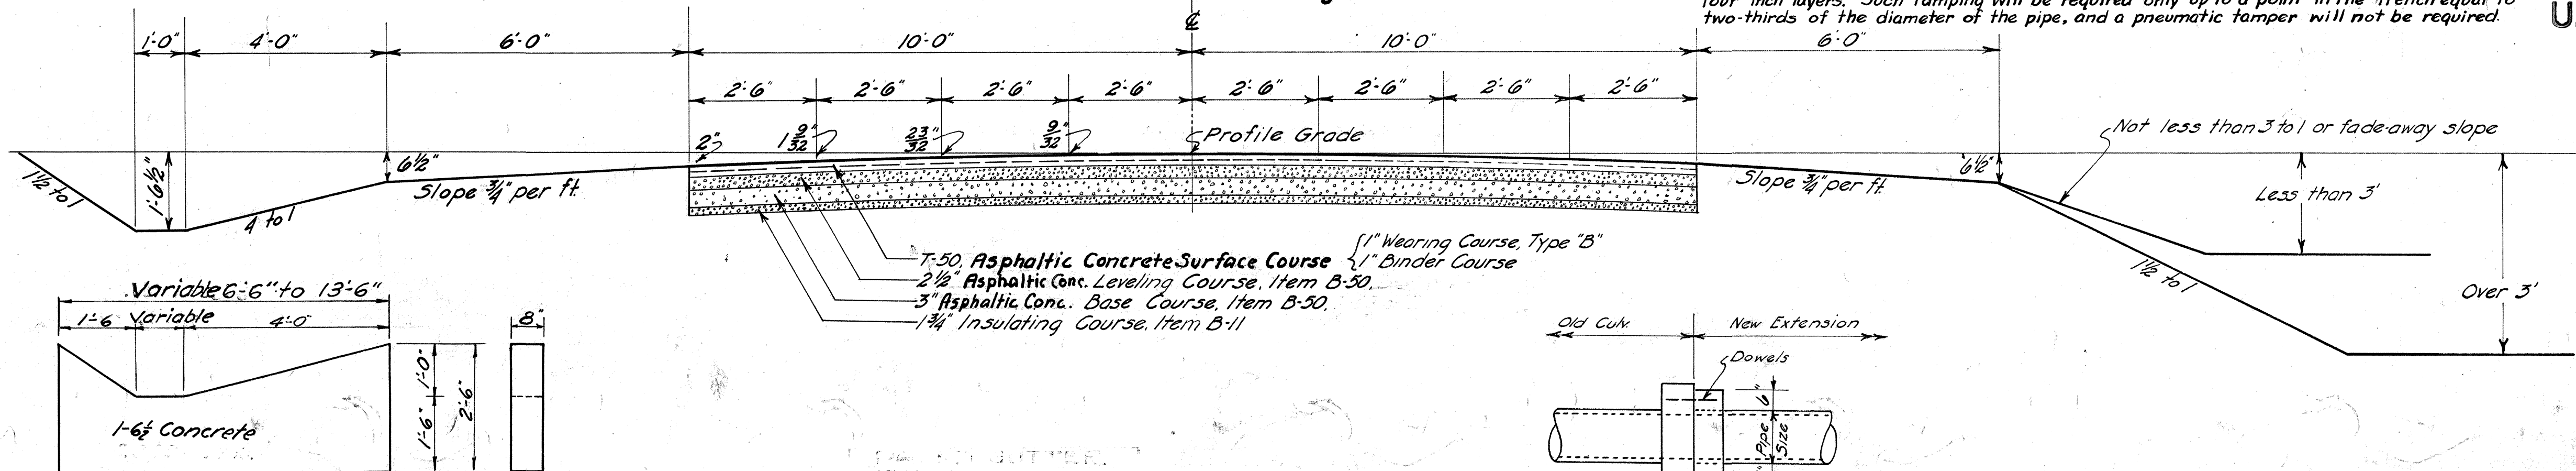 four inch layers. Such tamping will be required only up to a point in the trench equal to
two-thirds of the diameter of the pipe, and a pneumatic tamper will not be required.
℄
1'-0" 4'-0" 6'-0" 10'-0" 10'-0" 6'-0"
2'-6" 2'-6" 2'-6" 2'-6" 2'-6" 2'-6" 2'-6" 2'-6"
2" 1 9/32" 23/32" 9/32" Profile Grade
Not less than 3 to 1 or fade-away slope
1½ to 1
1'-6½"
4 to 1
6½"
Slope ¾" per ft.
Slope ¾" per ft.
6½"
Less than 3'
1½ to 1
Over 3'
T-50, Asphaltic Concrete Surface Course
1" Wearing Course, Type "B"
1" Binder Course
2½" Asphaltic Conc. Leveling Course, Item B-50,
3" Asphaltic Conc. Base Course, Item B-50,
1¾" Insulating Course, Item B-11
Variable 6'-6" to 13'-6"
1'-6 Variable 4'-0"
8"
1'-0"
1'-6"
2'-6"
1-6½ Concrete
Old Culv. New Extension
Dowels
6"
Pipe
Size